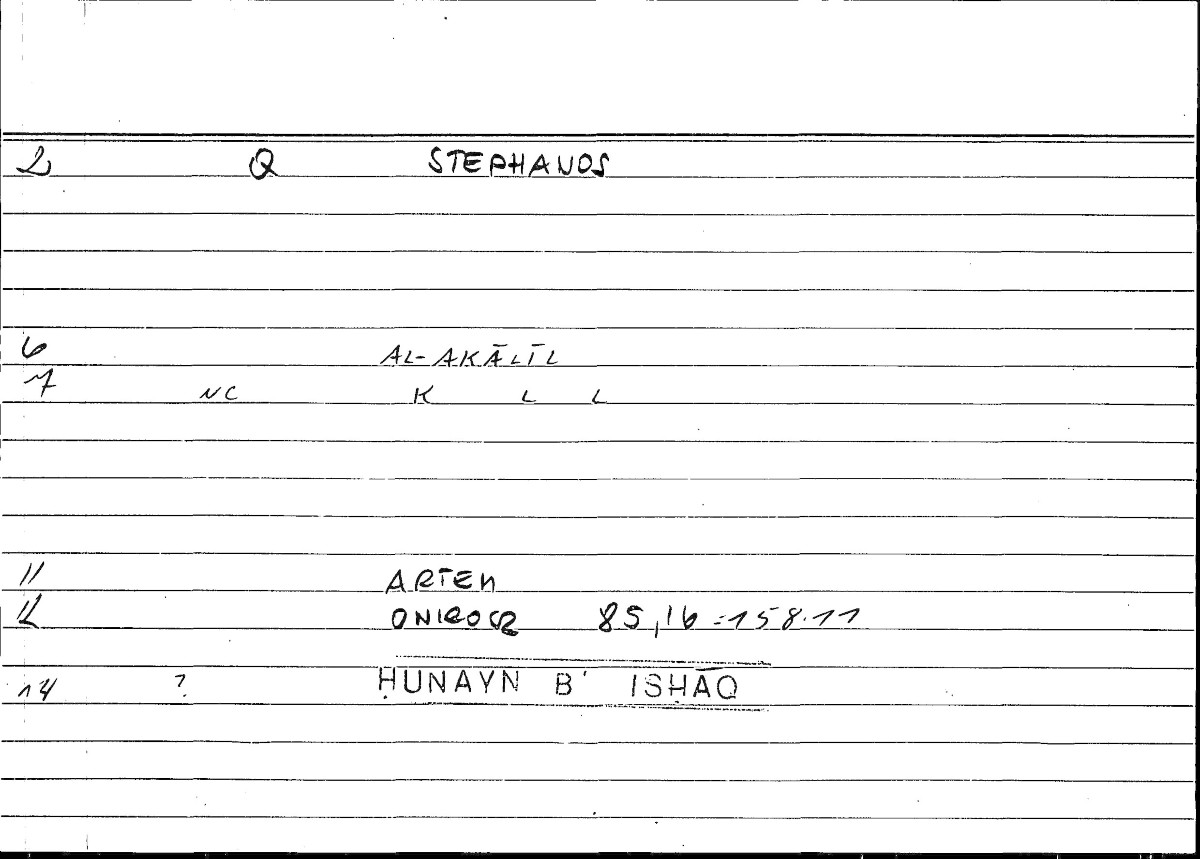 2 Q STEPHANOS
6 AL-AKĀLĪL
7 NC K L L
11 ARTEM
12 ONIROCR 85,16 = 158.11
14 ? ḤUNAYN B' ISḤĀQ